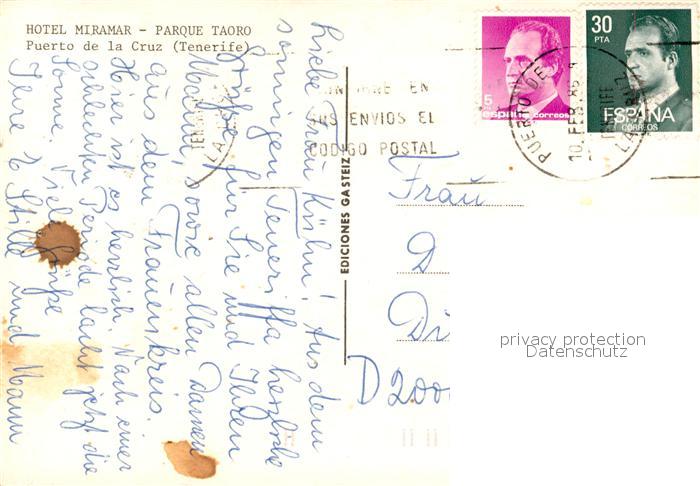 HOTEL MIRAMAR - PARQUE TAORO
Puerto de la Cruz (Tenerife)
Liebe Frau Kühn! Aus dem
sonnigen Teneriffa herzliche
Grüße für Sie und Ihren
Mann, sowie allen Damen
aus dem Frauenkreis.
Hier ist es herrlich. Nach einer
schlechten Periode lacht jetzt die
Sonne. Viele Grüße
Ihre und Mann
EDICIONES GASTEIZ
EN
SUS ENVIOS EL
CODIGO POSTAL
5
españa correos
30
PTA
ESPAÑA
CORREOS
PUERTO DE LA CRUZ
10 FEB 86
Frau
D
Di
D 2000
privacy protection
Datenschutz